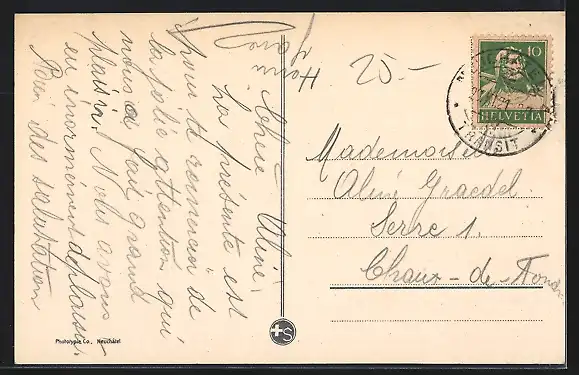 Chère Aliné,
La présente est
pour te remercier de
ta jolie attention qui
nous a fait grand
plaisir. Nous avons
eu énormement de plaisir.
Reçois des salutation
25.-
10
HELVETIA
TRANSIT
Mademoiselle
Aliné Graedel
Serre 1.
Chaux-de-Fonds
Phototypie Co., Neuchâtel
S